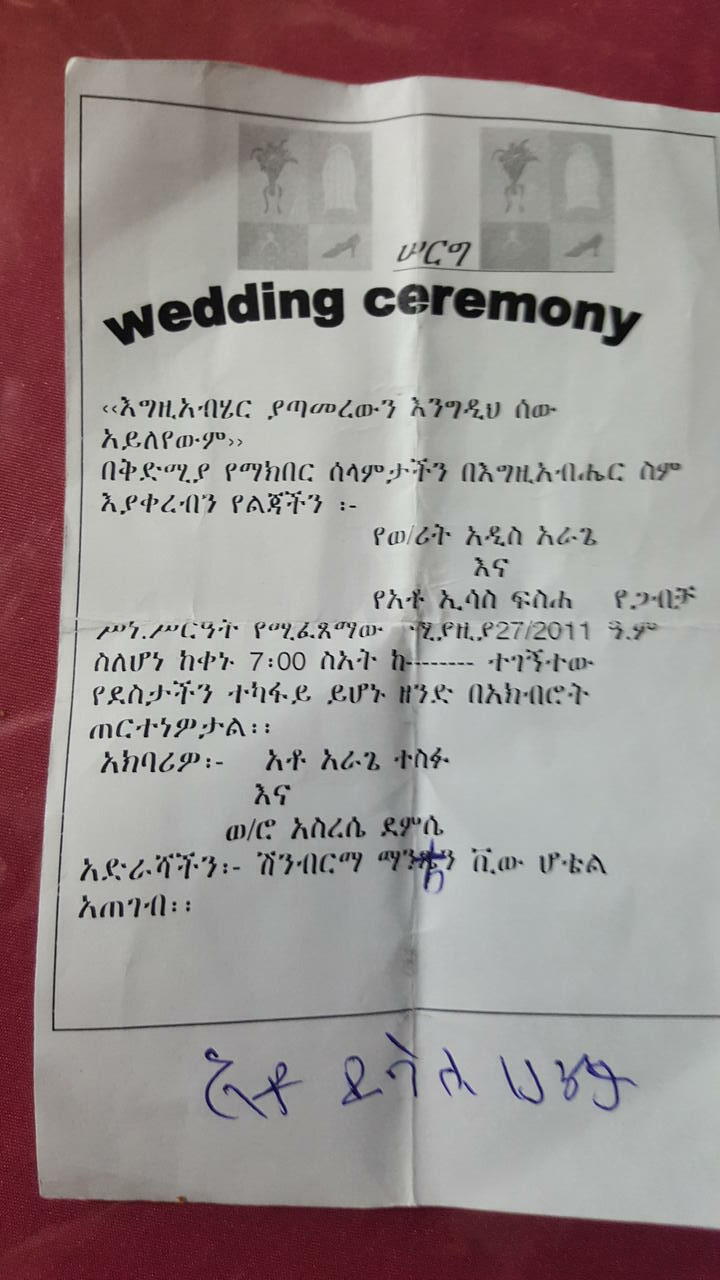 ሠርግ
wedding ceremony
‹‹እግዚአብሄር ያጣመረውን እንግዲህ ሰው
አይለየውም››
በቅድሚያ የማክበር ሰላምታችን በእግዚአብሔር ስም
እያቀረብን የልጃችን ፡-
የወ/ሪት አዲስ አራጌ
እና
የአቶ ኢሳስ ፍስሐ የጋብቻ
ሥነ.ሥርዓት የሚፈጸማው ሚያዚያ27/2011 ዓ.ም
ስለሆነ ከቀኑ 7:00 ስአት ከ-------- ተገኝተው
የደስታችን ተካፋይ ይሆኑ ዘንድ በአክብሮት
ጠርተነዎታል፡፡
አክባሪዎ፡- አቶ አራጌ ተስፋ
እና
ወ/ሮ አስረሴ ደምሴ
አድራሻችን፡- ሽንብርማ ቪው ሆቴል
አጠገብ፡፡
አቶ